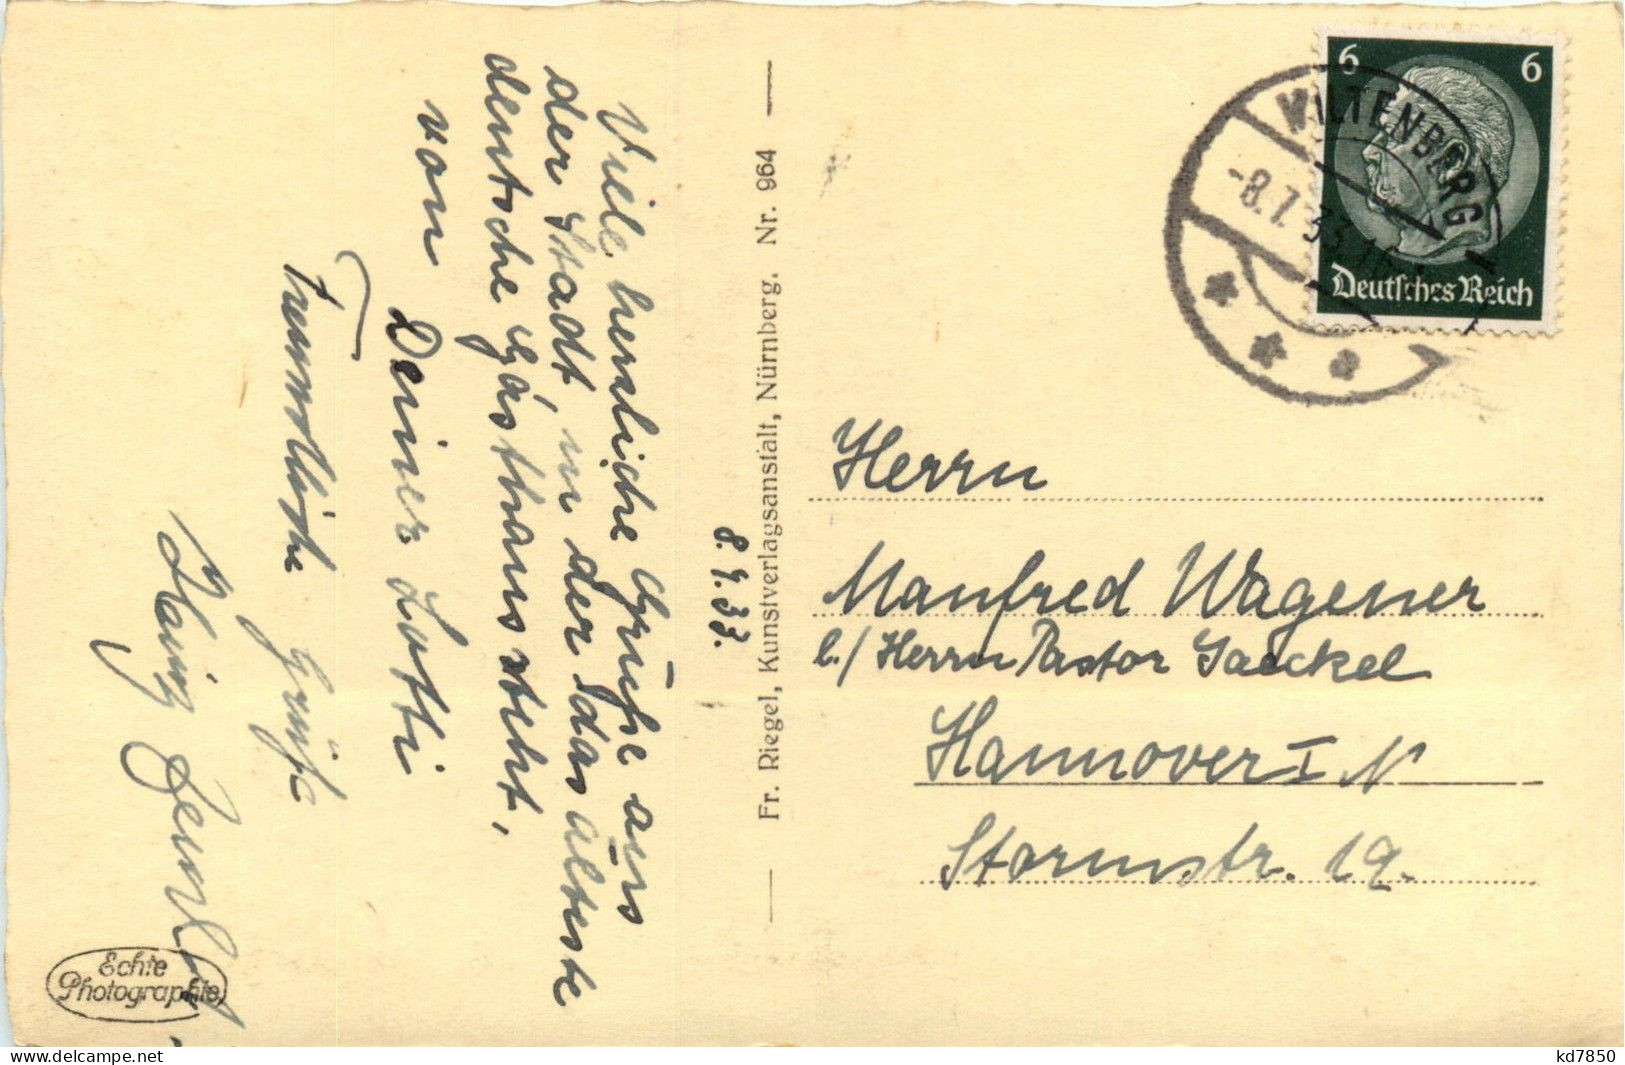 8.7.33.
Viele herzliche Grüße aus
der Stadt, in der das älteste
deutsche Gasthaus steht,
von Deiner Lotti
Freundliche Grüße
Heinz
Echte
Photographie
Fr. Riegel, Kunstverlagsanstalt, Nürnberg. Nr. 964
6 6
Deutsches Reich
MILTENBERG
-8.7.33
Herrn
Manfred Wagener
b./Herrn Pastor Jaeckel
Hannover I N
Stormstr. 19.
www.delcampe.net
kd7850